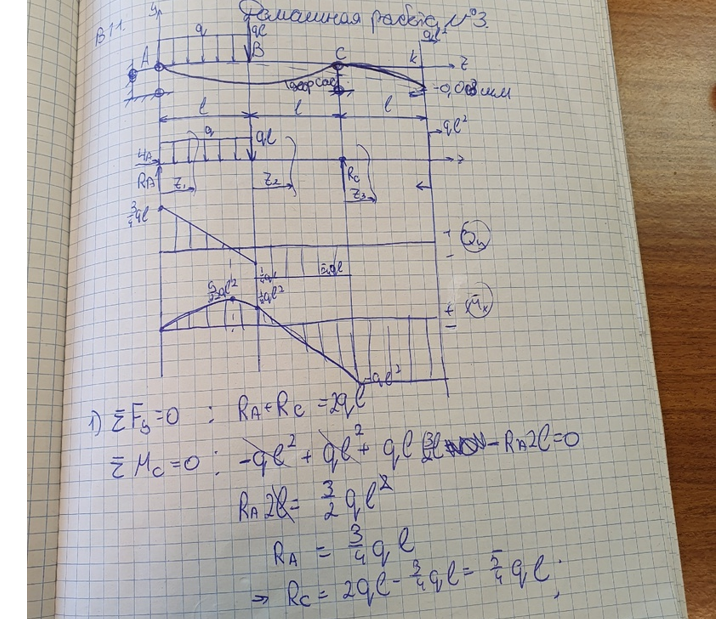 Домашная работа №3.
В11.
y
q
ql
ql²
A
B
C
k
z
-0,008 мм
l
l
l
q
ql
ql²
HA
RA
z₁
z₂
Rc
z₃
3/4 ql
+
Qy
-
9/32 ql²
1/4 ql²
+
Mx
-
-ql²
1) ΣFy=0 : RA+Rc=2ql
ΣMc=0 : -ql² + ql² + ql 3/2 l - RA2l=0
RA2l = 3/2 ql²
RA = 3/4 ql
⇒ Rc = 2ql - 3/4 ql = 5/4 ql ;